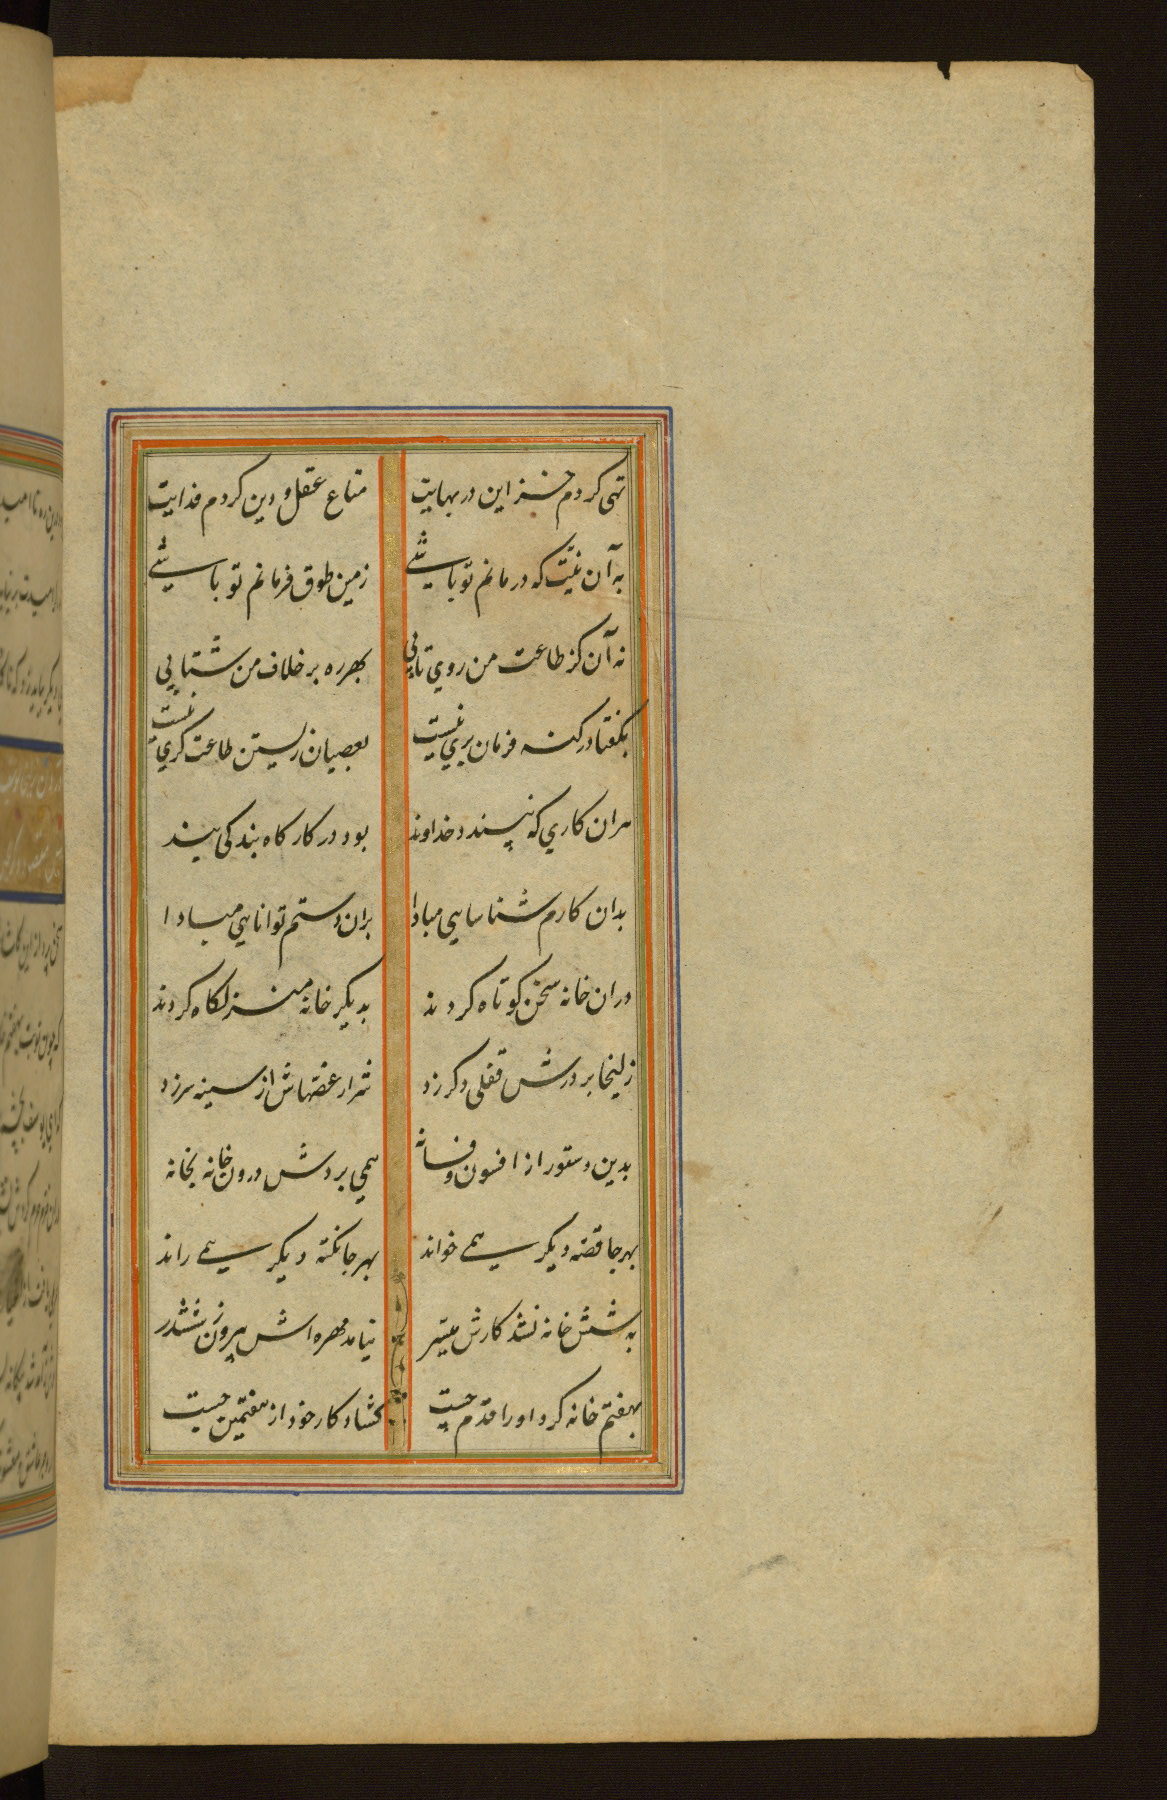 تهی کردم خزاین در بهایت
متاع عقل و دین کردم فدایت
به آن نیّت که درمانم تو باشے
زمین طوق فرمانم تو باشے
نه آن کز طاعت من روي تابی
بهر ره بر خلاف من شتابی
بگفتا در کنه فرمان بري نیست
بعصیان زیستن طاعت کري نیست
هران کاري که نپسندد خداوند
بود در کارکاه بندکی بند
بدان کارم شناسایي مبادا
بران دستم توانایي مبادا
دران خانه سخن کوتاه کردند
بدیکر خانه منزلکاه کردند
زلیخا بر درش قفلی دکر زد
شرار غصّهاش از سینه سر زد
بدین دستور از افسون و فسانه
همي بردش درون خانه بخانه
بهر جا قصّه دیکر همے خواند
بهر جا نکته دیکر همے راند
به شش خانه نشد کارش میسّر
نیامد مهره اش بیرون ز ششدر
بهفتم خانه کرد او را قدم چست
کشاد کار خود از هفتمین جست